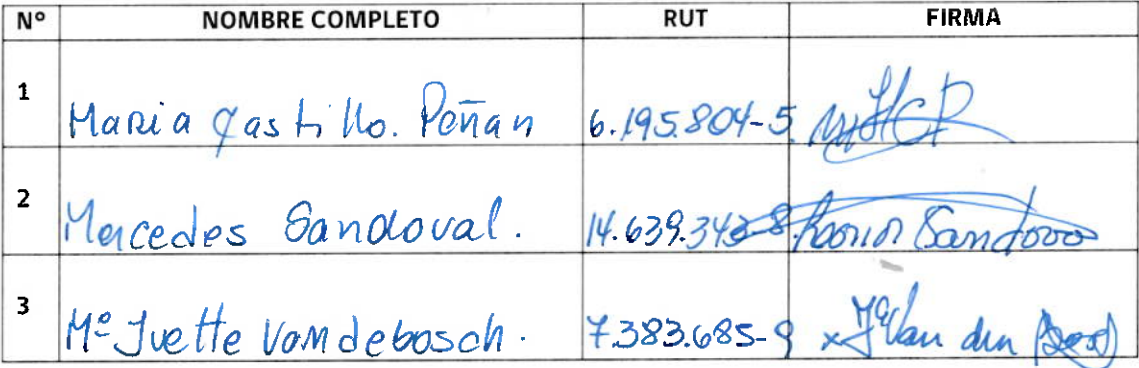 Nº NOMBRE COMPLETO RUT FIRMA
1 Maria Castillo. Peñan 6.195.804-5
2 Mercedes Sandoval. 14.639.343-8 Sandovo
3 Mª Ivette Vandebosch. 7.383.685-9 x Mª Van den